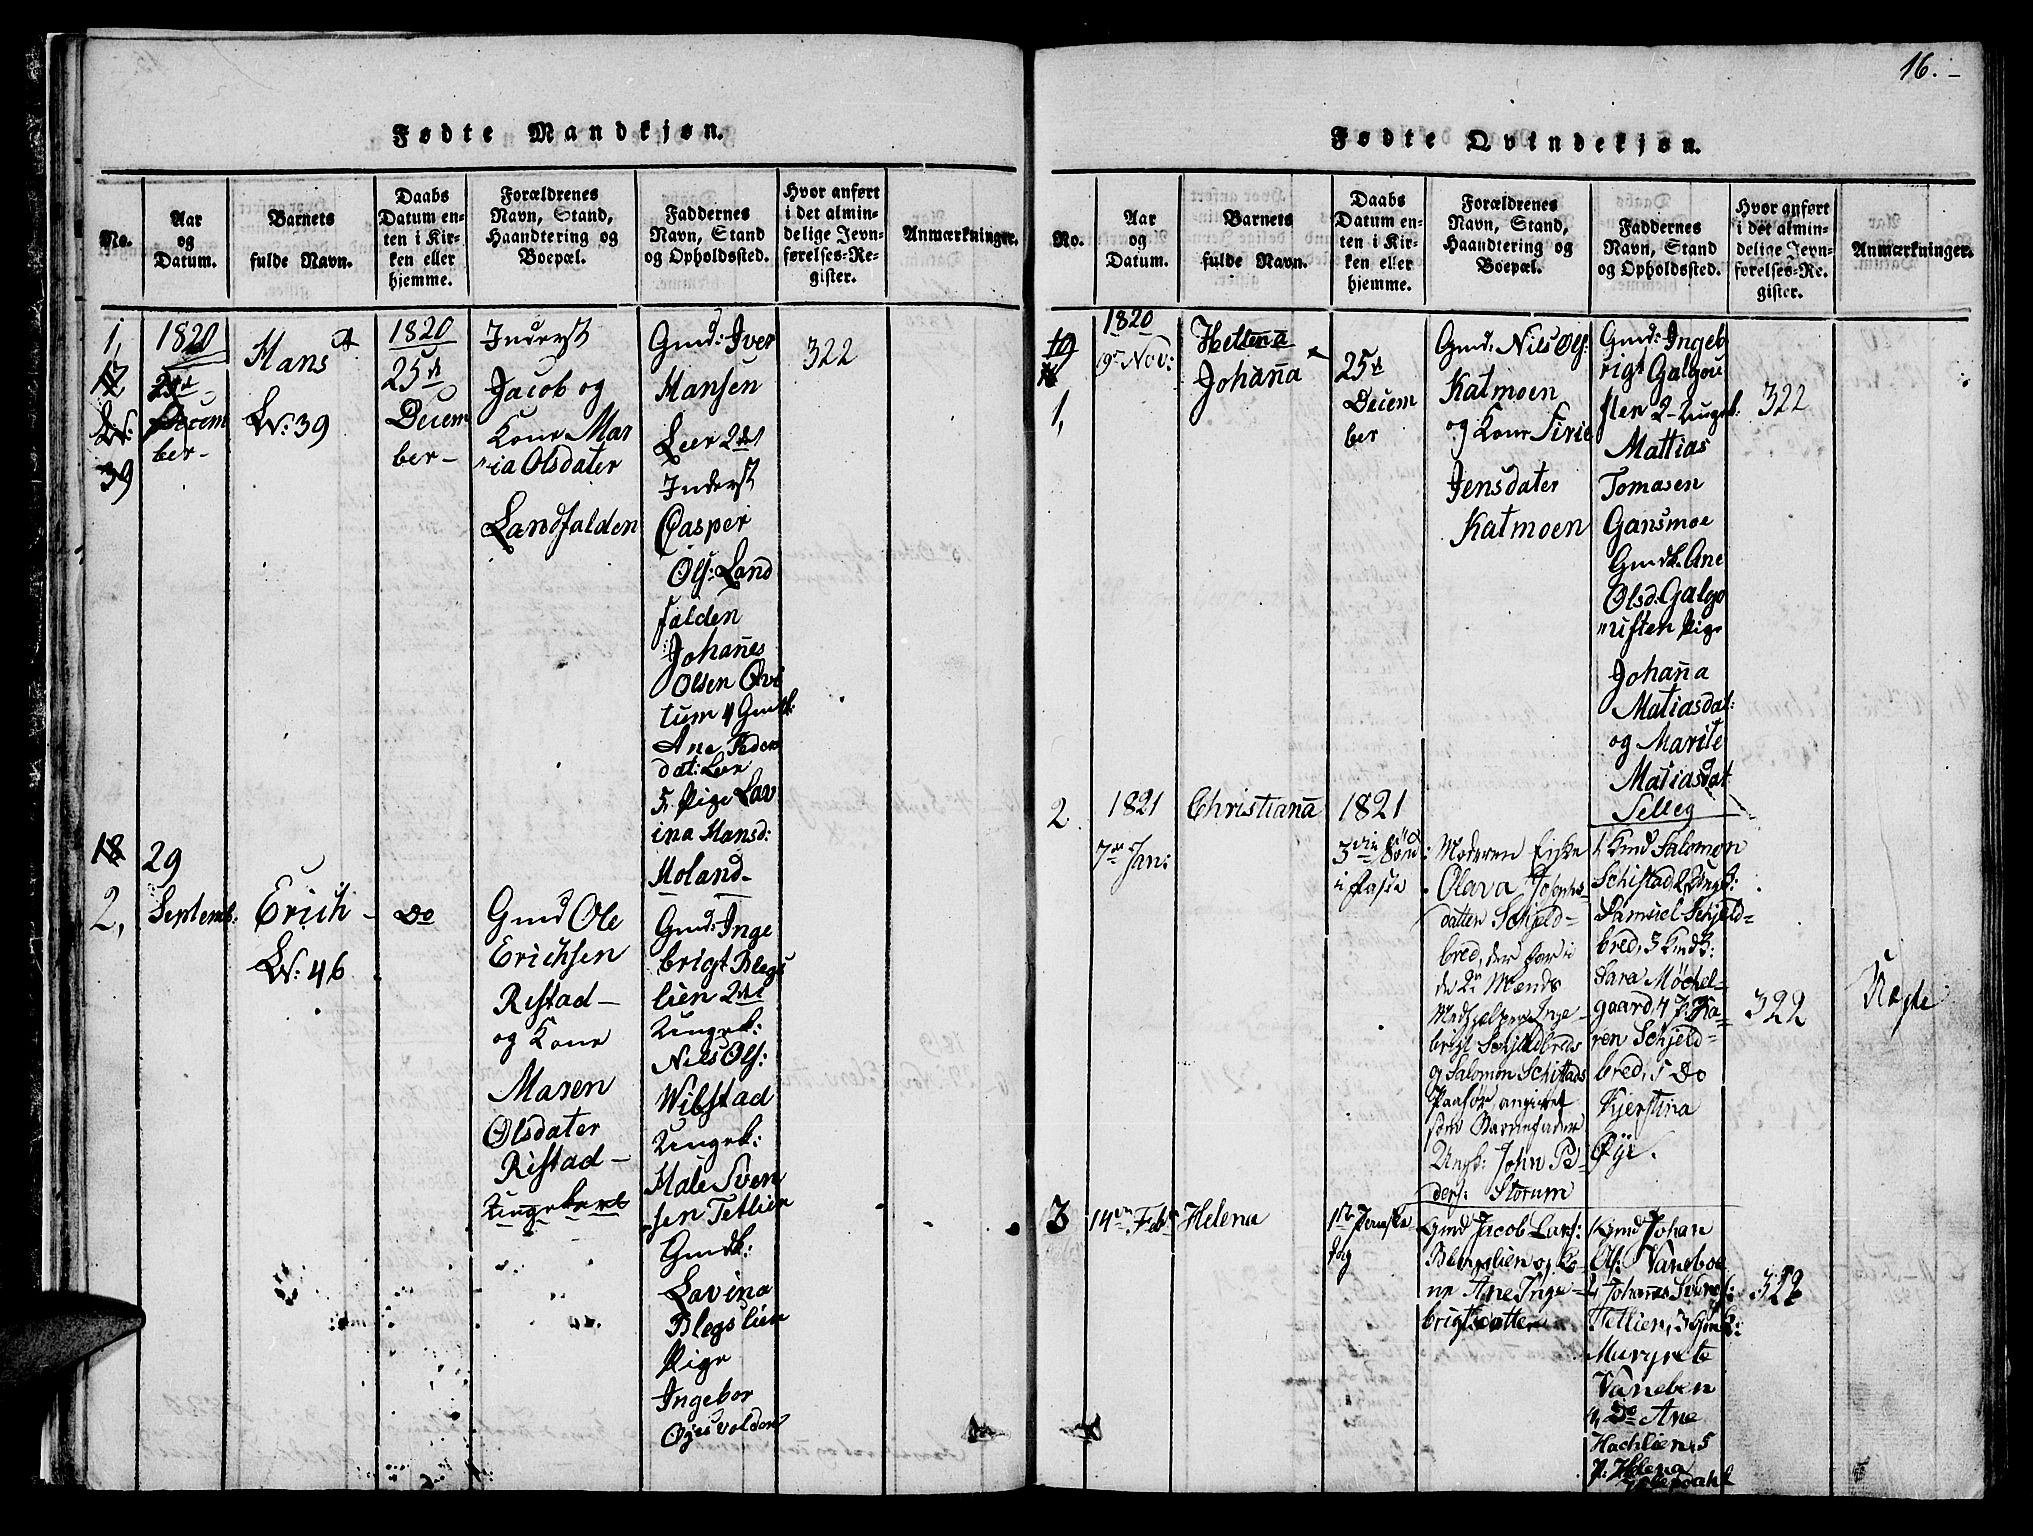 16.
Fødte Mandkjøn.
No.
Aar
og
Datum.
Barnets
fulde Navn.
Daabs
Datum en-
ten i Kir-
ken eller
hjemme.
Forældrenes
Navn, Stand,
Haandtering og
Boepæl.
Faddernes
Navn, Stand
og Opholdssted.
Hvor anført
i det almin-
delige Jevn-
førelses-Re-
gister.
Anmærkninger.
1,
39
1820
Decem
ber-
Hans
No: 39
1820
25de
Decem
ber-
Inderst
Jacob og
Kone Mar
ia Olsdater
Landfalden
Gmd: Iver
Hansen
Leer 2de
Inderst
Casper
Ols: Land
falden
Johañes
Olsen Qvi
tum 4 Gmdk:
Ane Peder
dat: Leer
5. Pige Lav
ina Hansd:
Moland-
322
18
2,
29
Septemb:
Erich-
No: 46
Do
Gmd Ole
Erichsen
Ristad-
og Kone
Maren
Olsdater
Ristad-
Ungekarl
Gmd: Inge
brigt Blegs
lien 2de
Ungek:
Nils Ols:
Wibstad
Ungek:
Hale Sven
sen Tetlien
Gmdk:
Lavina
Blegslien
Pige
Ingebor
Øjesvolden
Fødte Qvindekjøn.
No.
Aar
og
Datum.
Barnets
fulde Navn.
Daabs
Datum en-
ten i Kir-
ken eller
hjemme.
Forældrenes
Navn, Stand,
Haandtering og
Boepæl.
Faddernes
Navn, Stand
og Opholdssted.
Hvor anført
i det almin-
delige Jevn-
førelses-Re-
gister.
Anmærkninger.
1,
1820
9de Nov:
Hellena
Johaña
25de
Decem
ber
Gmd. Nils Ols:
Katmoen
og Kone Sirie
Jensdater
Katmoen
Gmd: Ingeb
rigt Galgou
ften 2 Ungek:
Mattias
Tomasen
Gansmoe
Gmdk: Ane
Olsd: Galgo
uften Pige
Johaña
Matiasdat:
og Marite
Matiasdat
Selleg
322
2
1821
7de Jan:
Christiaña
1821
3die Sønd:
i Faste
Moderen Eiske
Olava Josephs
datter Schjeld-
bred, der for i
de 2 Mænds
Medhjelper Inge-
brigt Schjeldbreds
og Salomon Schistads
Paahør angivet
som Barnefader
Ungk: John Pe-
ders: Storum
1 Gmd Salomon
Schistad 2, Ungk:
Samuel Schjeld-
bred, 3 Gmdk:
Sara Møchel-
gaard, 4 P: Ka-
ren Schjeld-
bred, 5 Do
Kjerstina
Øye.
322
3
14de Feb:
Helena
1ste Paaske
dag
Gmd Jacob Lars:
Blengslien og Ko-
ne Ane Inge-
brigtsdatter
1 Gmd Johan
Ols: Vaneboe
2 Johañes Svens:
Hetlien, 3 Gmdk:
Margrete
Vaneben
4, Do Ane
Hachlien, 5
P: Helena
322